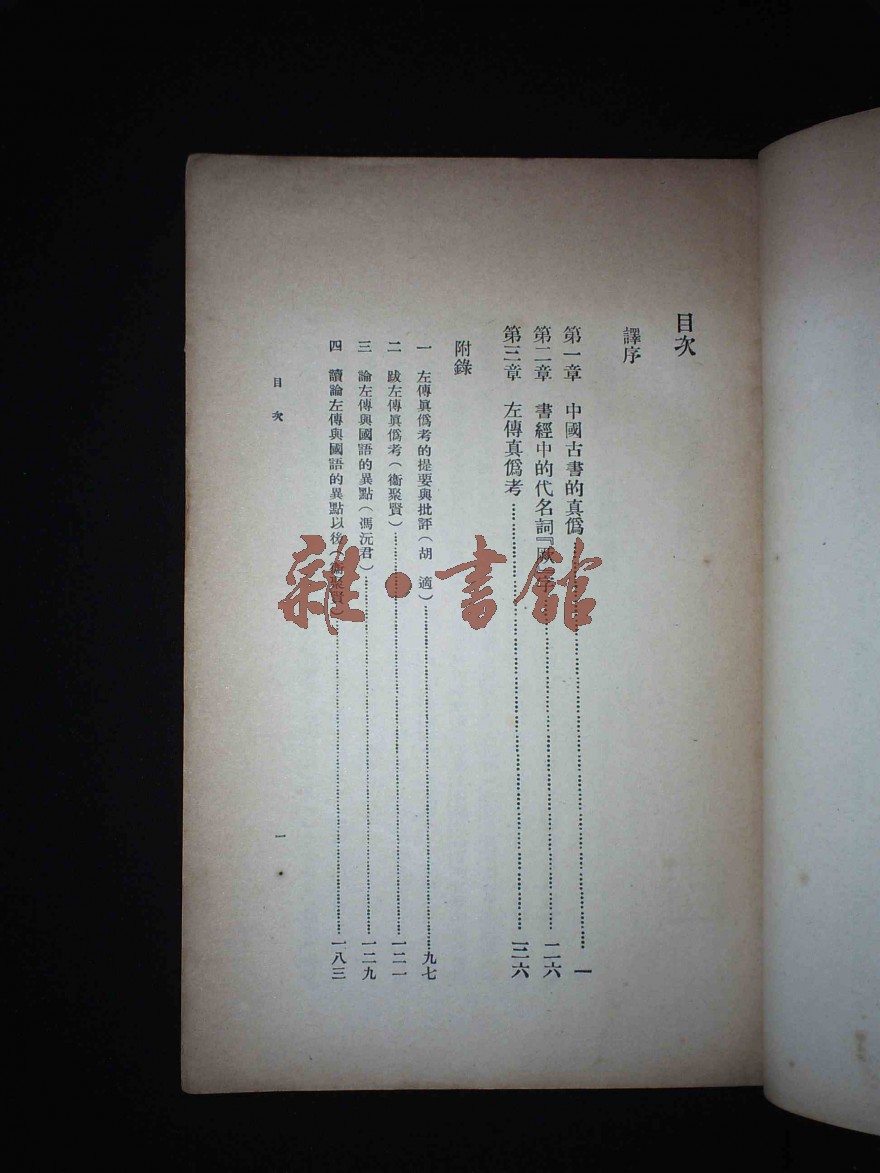 目次
譯序
第一章 中國古書的真僞……一
第二章 書經中的代名詞『厥』字……二六
第三章 左傳真僞考……三六
附錄
一 左傳眞僞考的提要與批評(胡 適)……九七
二 跋左傳眞僞考(衞聚賢)……一二一
三 論左傳與國語的異點(馮沅君)……一二九
四 讀論左傳與國語的異點以後(衞聚賢)……一八三
目次
一
雜·書館